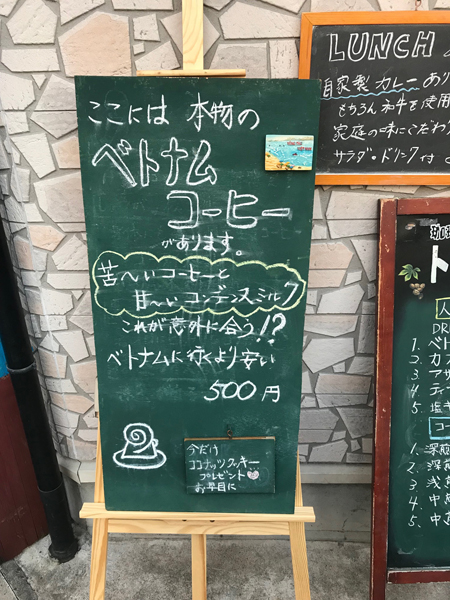 ここには 本物の
ベトナム
コーヒー
があります。
苦〜いコーヒーと
甘〜いコンデンスミルク
これが意外に合う!?
ベトナムに行くより安い
500円
今だけ
ココナッツクッキー
プレゼント
お早目に
LUNCH
自家製カレーあり
もちろん和牛を使用
家庭の味にこだわ
サラダ・ドリンク付
人
DRI
1. ベト
2. カフ
3. アサ
4. ティー
5. 塩キ
コー
1. 深煎
2. 深煎
3. 浅煎
4. 中煎
5. 中煎